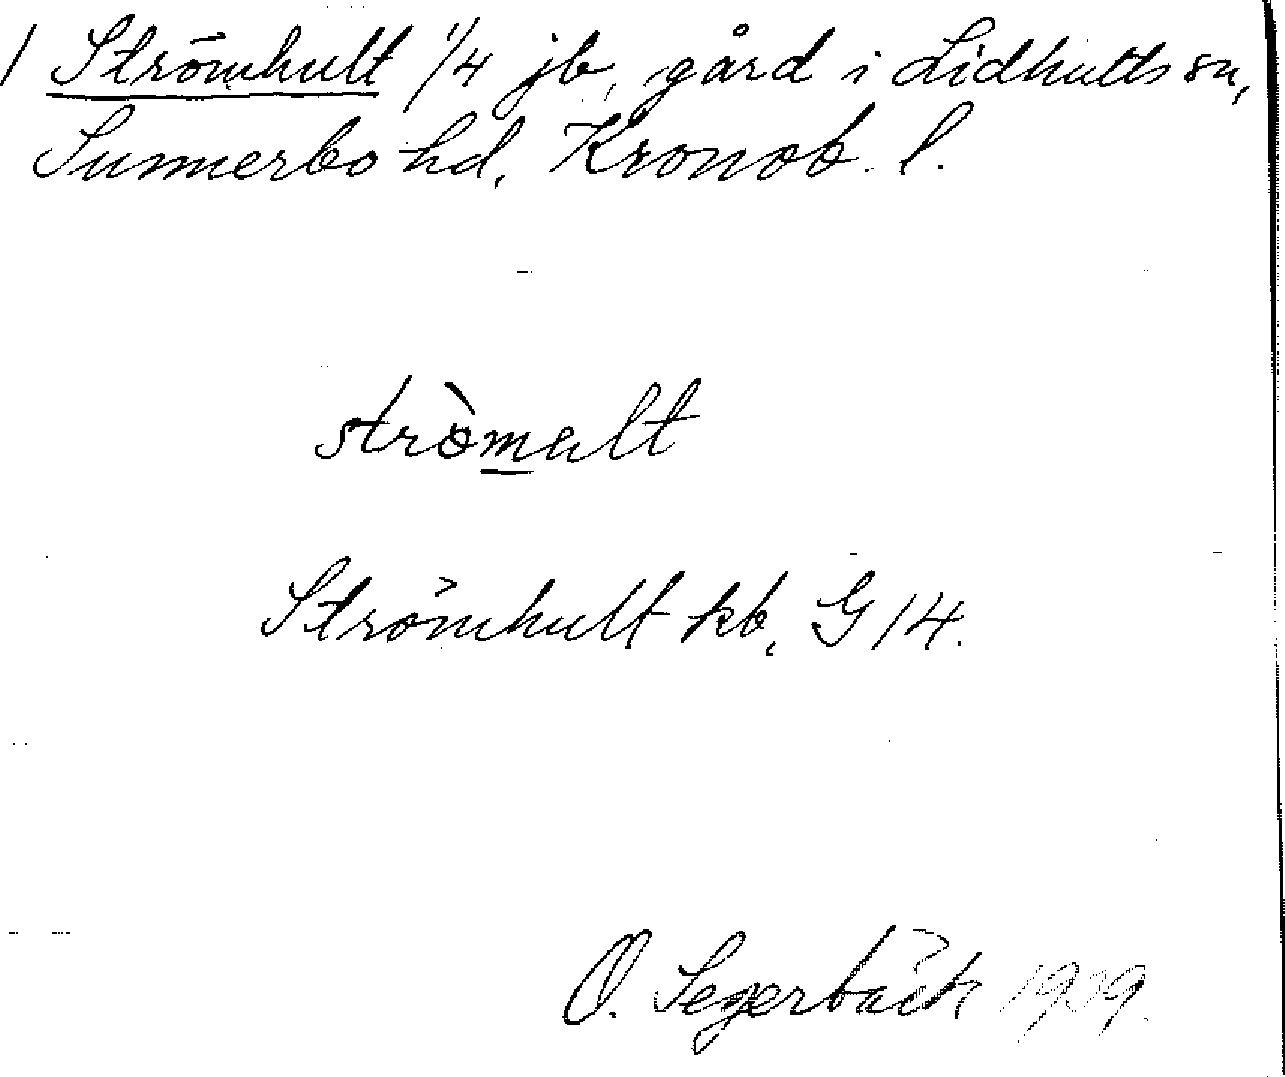 1 Strömhult 1/4 jb, gård i Lidhults sn,
Sunnerbo hd, Kronob. l.
stròmult
Strömhult kb, G14.
O. Segerbäck 1929.